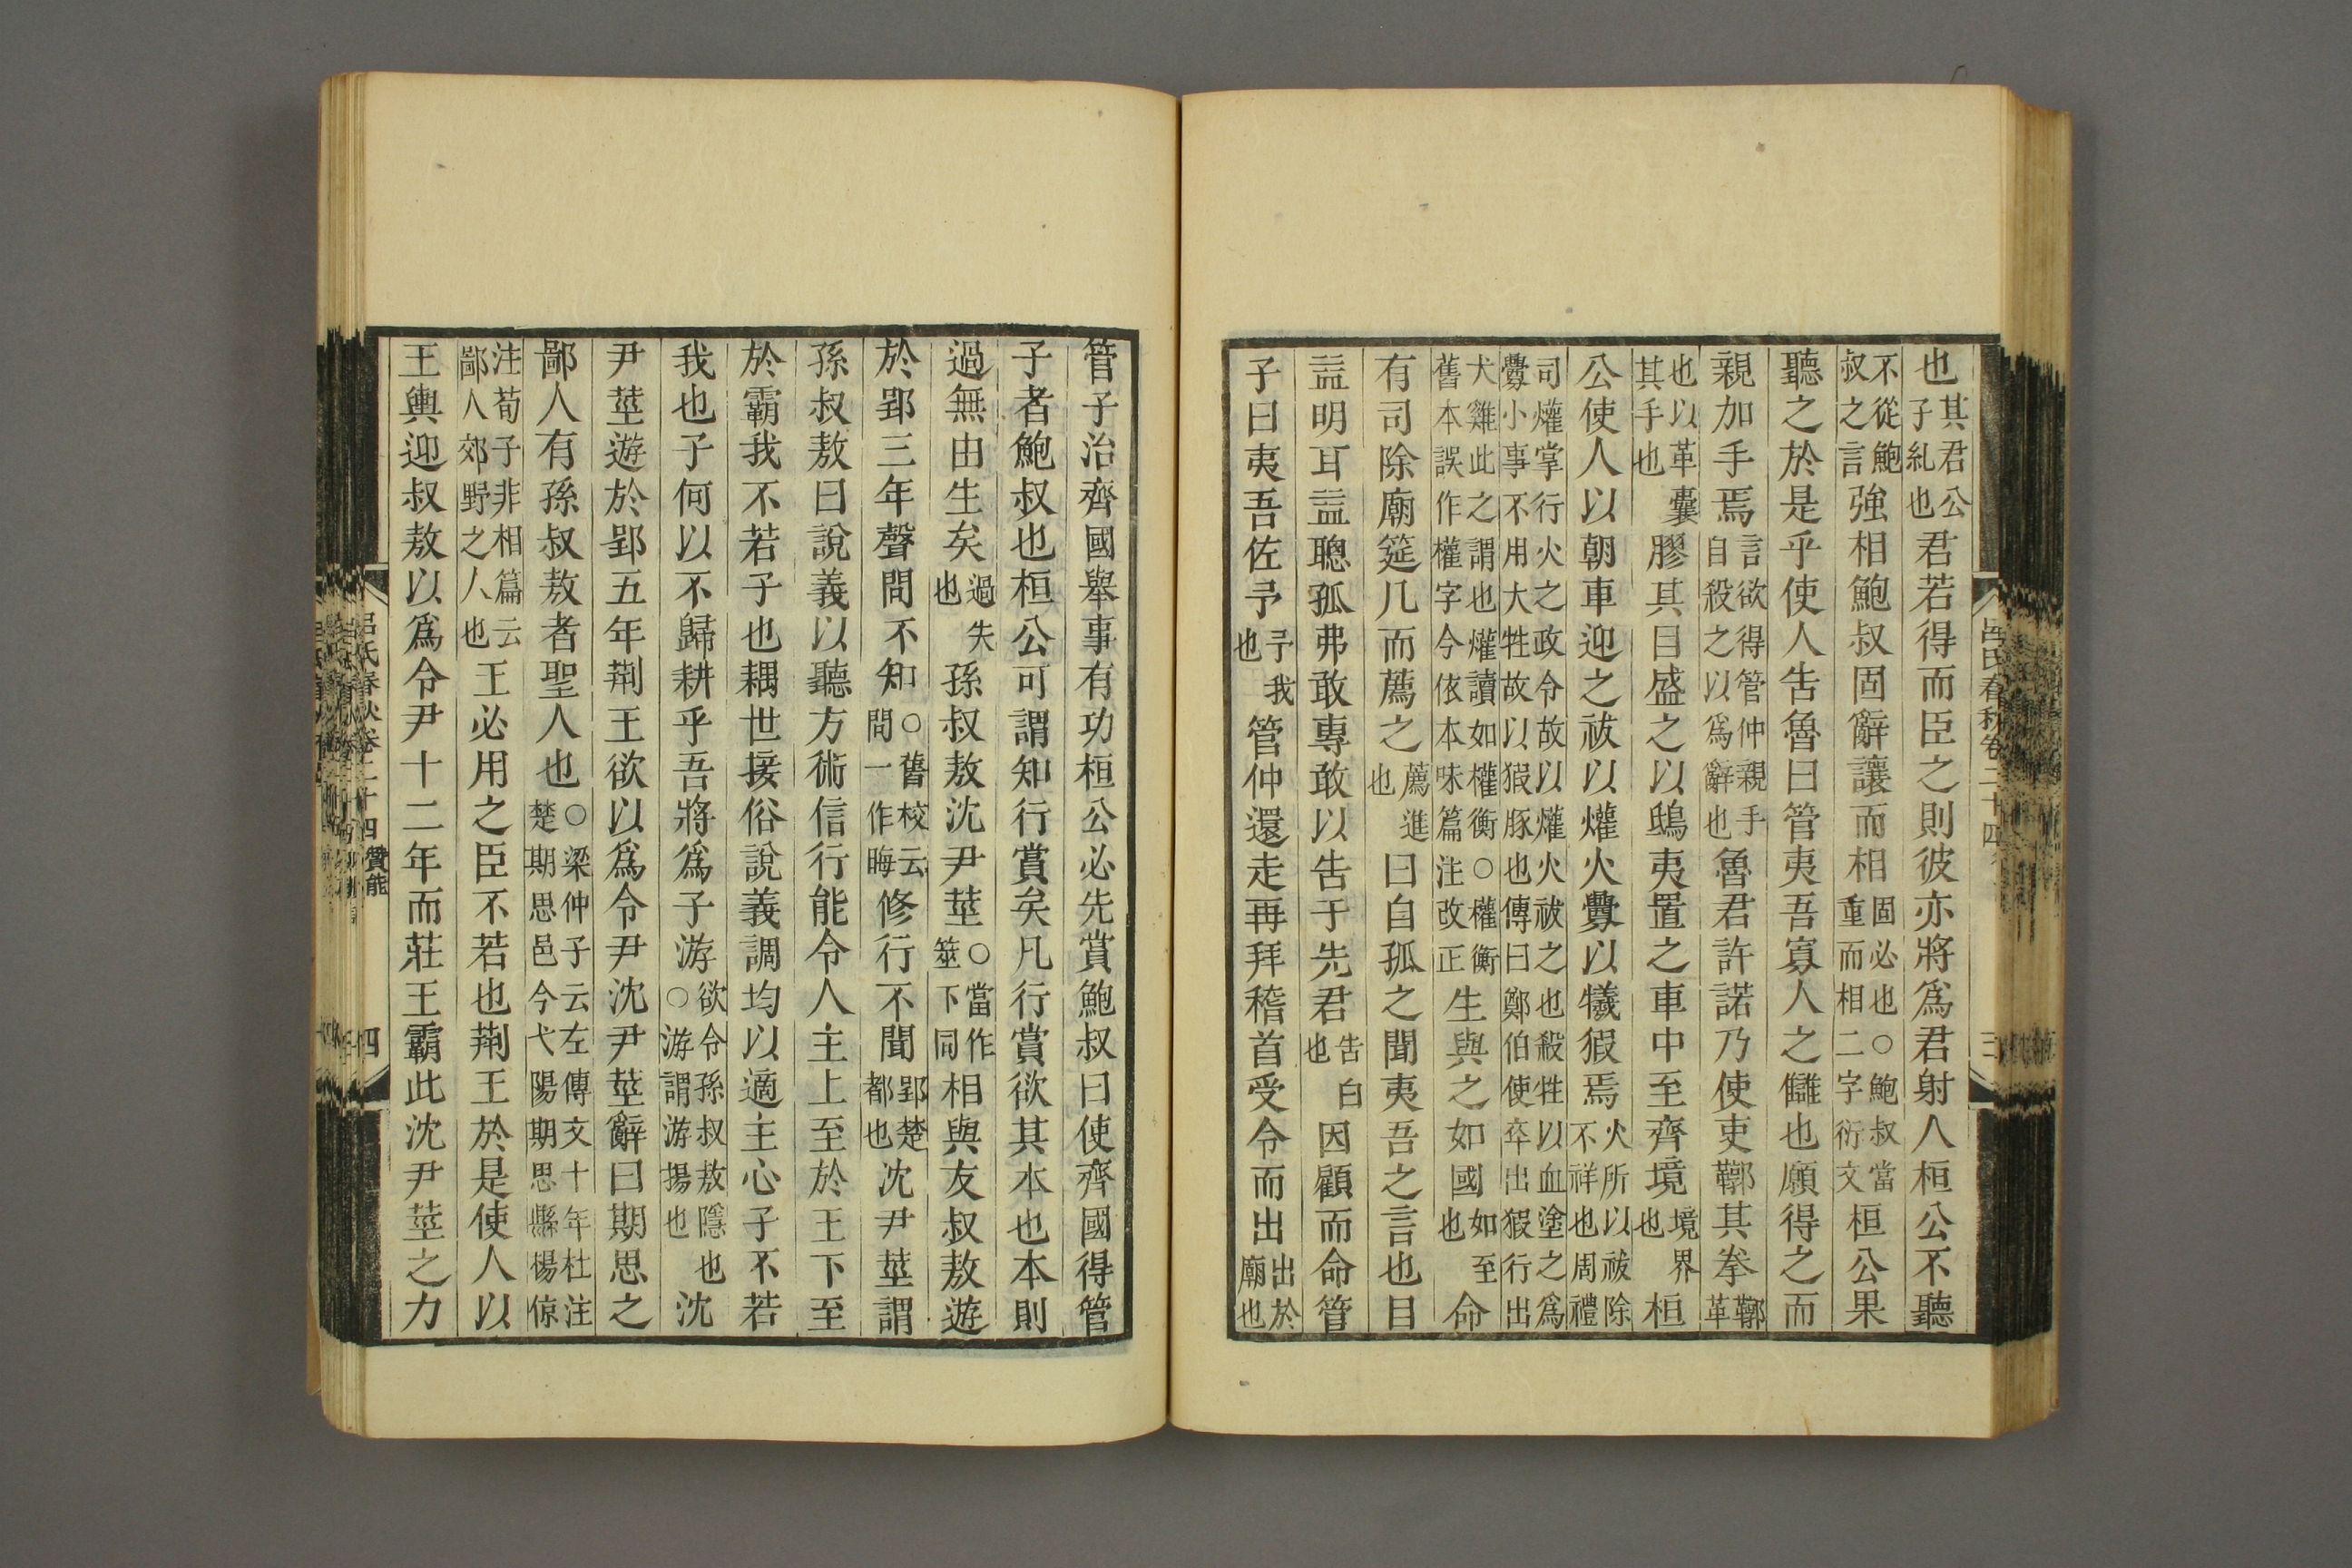 也其君公子糺也君若得而臣之則彼亦將爲君射人桓公不聽
不從鮑叔之言強相鮑叔固辭讓而相固必也○鮑叔當重而相二字衍文桓公果
聽之於是乎使人告魯曰管夷吾寡人之讎也願得之而
親加手焉言欲得管仲親手自殺之以爲辭也魯君許諾乃使吏鞹其拳鞹革
也以革囊其手也膠其目盛之以鴟夷置之車中至齊境境界也桓
公使人以朝車迎之祓以爟火釁以犧猳焉火所以祓除不祥也周禮
司爟掌行火之政令故以爟火祓之也殺牲以血塗之爲釁小事不用大牲故以猳豚也傳曰鄭伯使卒出猳行出
犬雞此之謂也爟讀如權衡○權衡舊本誤作權字今依本味篇注改正生與之如國如至也命
有司除廟筵几而薦之薦進也曰自孤之聞夷吾之言也目
益明耳益聰孤弗敢專敢以告于先君告白也因顧而命管
子曰夷吾佐予予我也管仲還走再拜稽首受令而出出於廟也
呂氏春秋卷二十四
三
管子治齊國舉事有功桓公必先賞鮑叔曰使齊國得管
子者鮑叔也桓公可謂知行賞矣凡行賞欲其本也本則
過無由生矣過失也孫叔敖沈尹莖○當作筮下同相與友叔敖遊
於郢三年聲問不知○舊校云問一作晦修行不聞郢楚都也沈尹莖謂
孫叔敖曰說義以聽方術信行能令人主上至於王下至
於霸我不若子也耦世接俗說義調均以適主心子不若
我也子何以不歸耕乎吾將爲子游欲令孫叔敖隱也○游謂游揚也沈
尹莖遊於郢五年荆王欲以爲令尹沈尹莖辭曰期思之
鄙人有孫叔敖者聖人也○梁仲子云左傳文十年杜注楚期思邑今弋陽期思縣楊倞
注荀子非相篇云鄙人郊野之人也王必用之臣不若也荆王於是使人以
王輿迎叔敖以爲令尹十二年而莊王霸此沈尹莖之力
呂氏春秋卷二十四 贊能
四